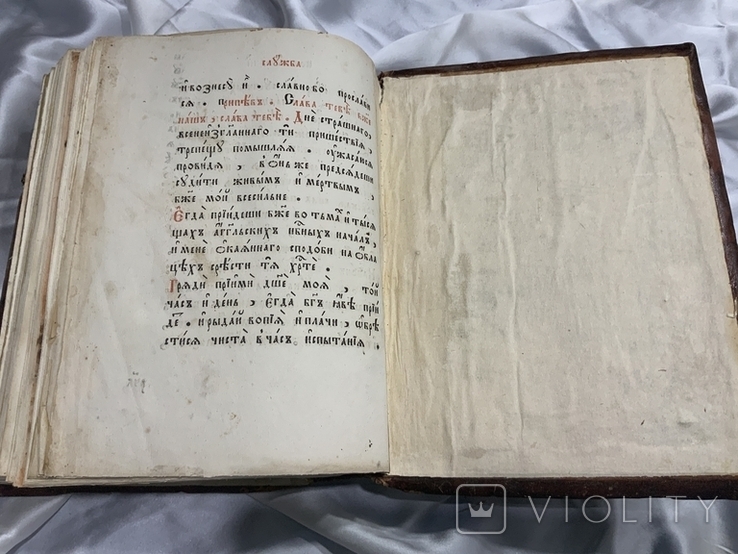 служба
и҆вознесꙋ̀ и҆̀ . сла́внобо просла́ви
сѧ . припѣ́въ . Сла́ва тебѣ̀ бо́же
на́шъ , сла́ва тебѣ̀ . Днѐ стра́шнаго ,
всенеи҆згла́ннаго тѝ прише́ствїѧ ,
трепе́щꙋ помышлѧ́ѧ . ᲂу҆жаса́исѧ
прови́дѧ , во́ньже предсѧ́деши
сꙋди́ти живы́мъ и҆ме́ртвымъ ,
бж҃е мо́й всеси́льне .
Є҆гда̀ прїи́деши бж҃е вотма́хъ и҆ты́сѧ
щахъ а҆́гг҃льскихъ нб҃ныхъ нача́лъ ,
и҆менѐ ѻ҆каѧ́ннаго сподо́би на ѻ҆́бла
цѣхъ срѣ́сти тѧ̀ хрⷭ҇тѐ .
Грѧдѝ прїимѝ дш҃ѐ моѧ̀ , то́й
ча́съ и҆де́нь , є҆гда̀ бг҃ъ ꙗ҆́вѣ прїи́
детъ . и҆рыда́й вопїѧ̀ и҆пла́чи , ѡ҆брѣ
сти́сѧ чиста̀ вча́съ и҆спыта́нїѧ .
VIOLITY